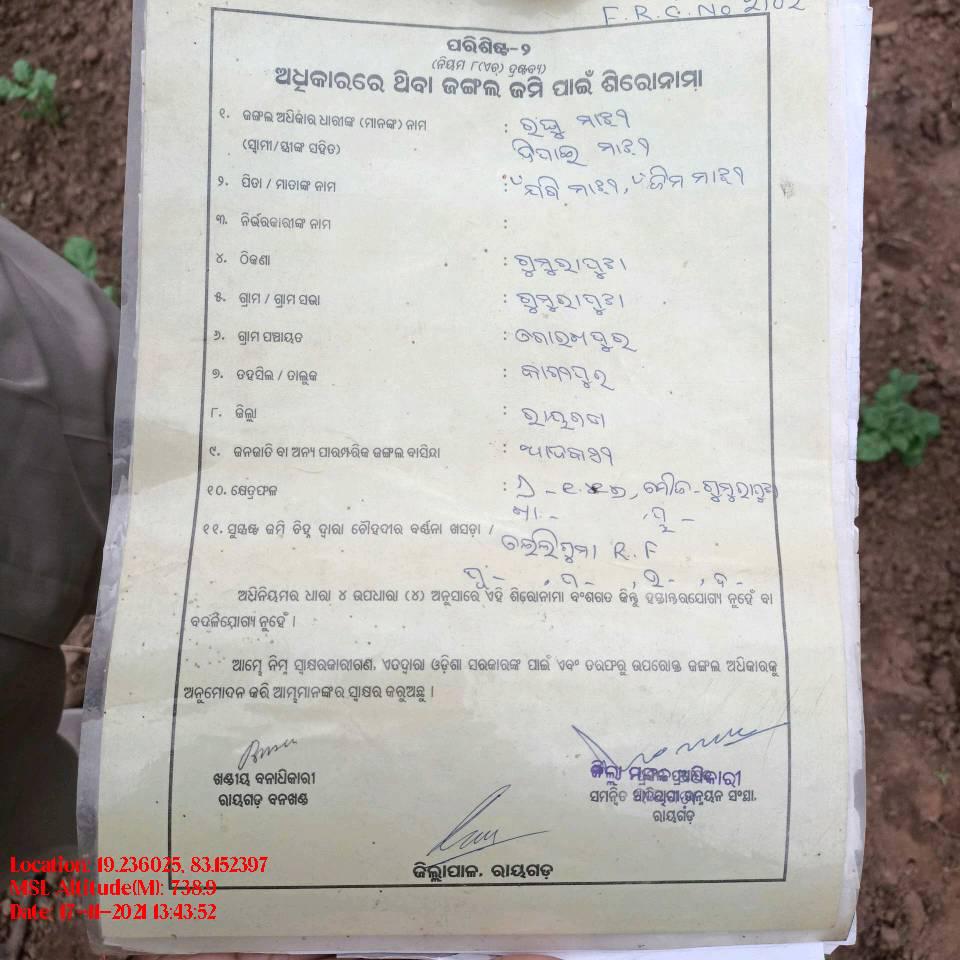 F.R.C. No 2102
ପରିଶିଷ୍ଟ-୨
(ନିୟମ ୮(ଏଚ୍) ଦ୍ରଷ୍ଟବ୍ୟ)
ଅଧିକାରରେ ଥିବା ଜଙ୍ଗଲ ଜମି ପାଇଁ ଶିରୋନାମା
୧. ଜଙ୍ଗଲ ଅଧିକାର ଧାରୀଙ୍କ (ମାନଙ୍କ) ନାମ : ରଘୁ ମାଝୀ
(ସ୍ୱାମୀ/ସ୍ତ୍ରୀଙ୍କ ସହିତ) ମାଝୀ
୨. ପିତା / ମାତାଙ୍କ ନାମ : ମାଝୀ, ମାଝୀ
୩. ନିର୍ଭରକାରୀଙ୍କ ନାମ :
୪. ଠିକଣା : ଗୁମୁରାପୁଟ।
୫. ଗ୍ରାମ / ଗ୍ରାମ ସଭା : ଗୁମୁରାପୁଟ।
୬. ଗ୍ରାମ ପଞ୍ଚାୟତ : ଗୋରଖପୁର
୭. ତହସିଲ / ତାଲୁକ : କାଶୀପୁର
୮. ଜିଲ୍ଲା : ରାୟଗଡା
୯. ଜନଜାତି ବା ଅନ୍ୟ ପାରମ୍ପରିକ ଜଙ୍ଗଲ ବାସିନ୍ଦା : ଆଦିବାସୀ
୧୦. କ୍ଷେତ୍ରଫଳ : ମୌଜା-ଗୁମୁରାପୁଟ
ଖା.- , ପ୍ଲ -
୧୧. ସୁସ୍ପଷ୍ଟ ଜମି ଚିହ୍ନ ଦ୍ୱାରା ଚୌହଦୀର ବର୍ଣ୍ଣନା ଖସଡ଼ା / R.F
ପୂ- , ପ- , ଉ- , ଦ-
ଅଧିନିୟମର ଧାରା ୪ ଉପଧାରା (୪) ଅନୁସାରେ ଏହି ଶିରୋନାମା ବଂଶଗତ କିନ୍ତୁ ହସ୍ତାନ୍ତରଯୋଗ୍ୟ ନୁହେଁ ବା
ବଦଳିଯୋଗ୍ୟ ନୁହେଁ ।
ଆମ୍ଭେ ନିମ୍ନ ସ୍ୱାକ୍ଷରକାରୀଗଣ, ଏତଦ୍ୱାରା ଓଡ଼ିଶା ସରକାରଙ୍କ ପାଇଁ ଏବଂ ତରଫରୁ ଉପରୋକ୍ତ ଜଙ୍ଗଲ ଅଧିକାରକୁ
ଅନୁମୋଦନ କରି ଆମ୍ଭମାନଙ୍କର ସ୍ୱାକ୍ଷର କରୁଅଛୁ ।
ଖଣ୍ଡୀୟ ବନାଧିକାରୀ
ରାୟଗଡ଼ ବନଖଣ୍ଡ
ଜିଲ୍ଲା ମଙ୍ଗଳ ଅଧିକାରୀ
ସମନ୍ୱିତ ଆଦିବାସୀ ଉନ୍ନୟନ ସଂସ୍ଥା,
ରାୟଗଡ଼
ଜିଲ୍ଲାପାଳ, ରାୟଗଡ଼
Location: 19.236025, 83.152397
MSL Altitude(M): 738.9
Date: 17-11-2021 13:43:52